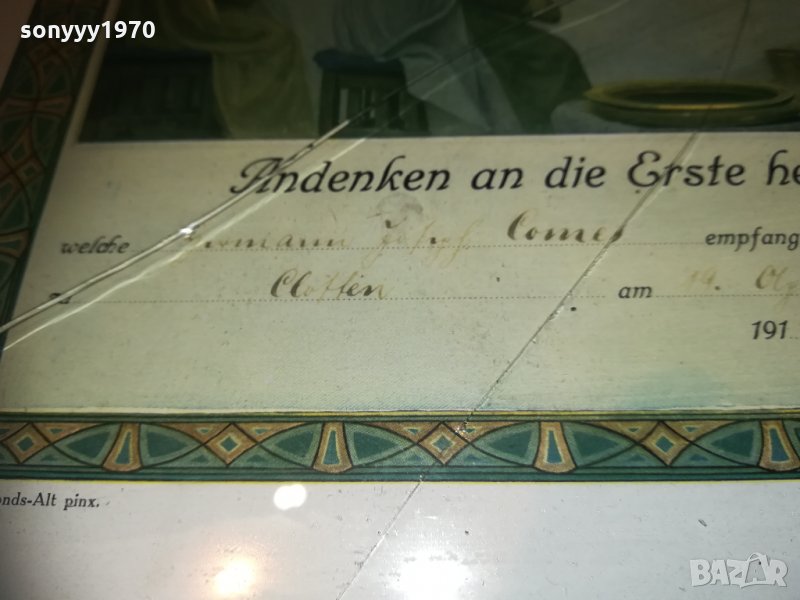 sonyyy1970
Andenken an die Erste he
welche Hermann Joseph Comes empfang
zu Clotten am 19.
191
onds-Alt pinx.
BAZAR